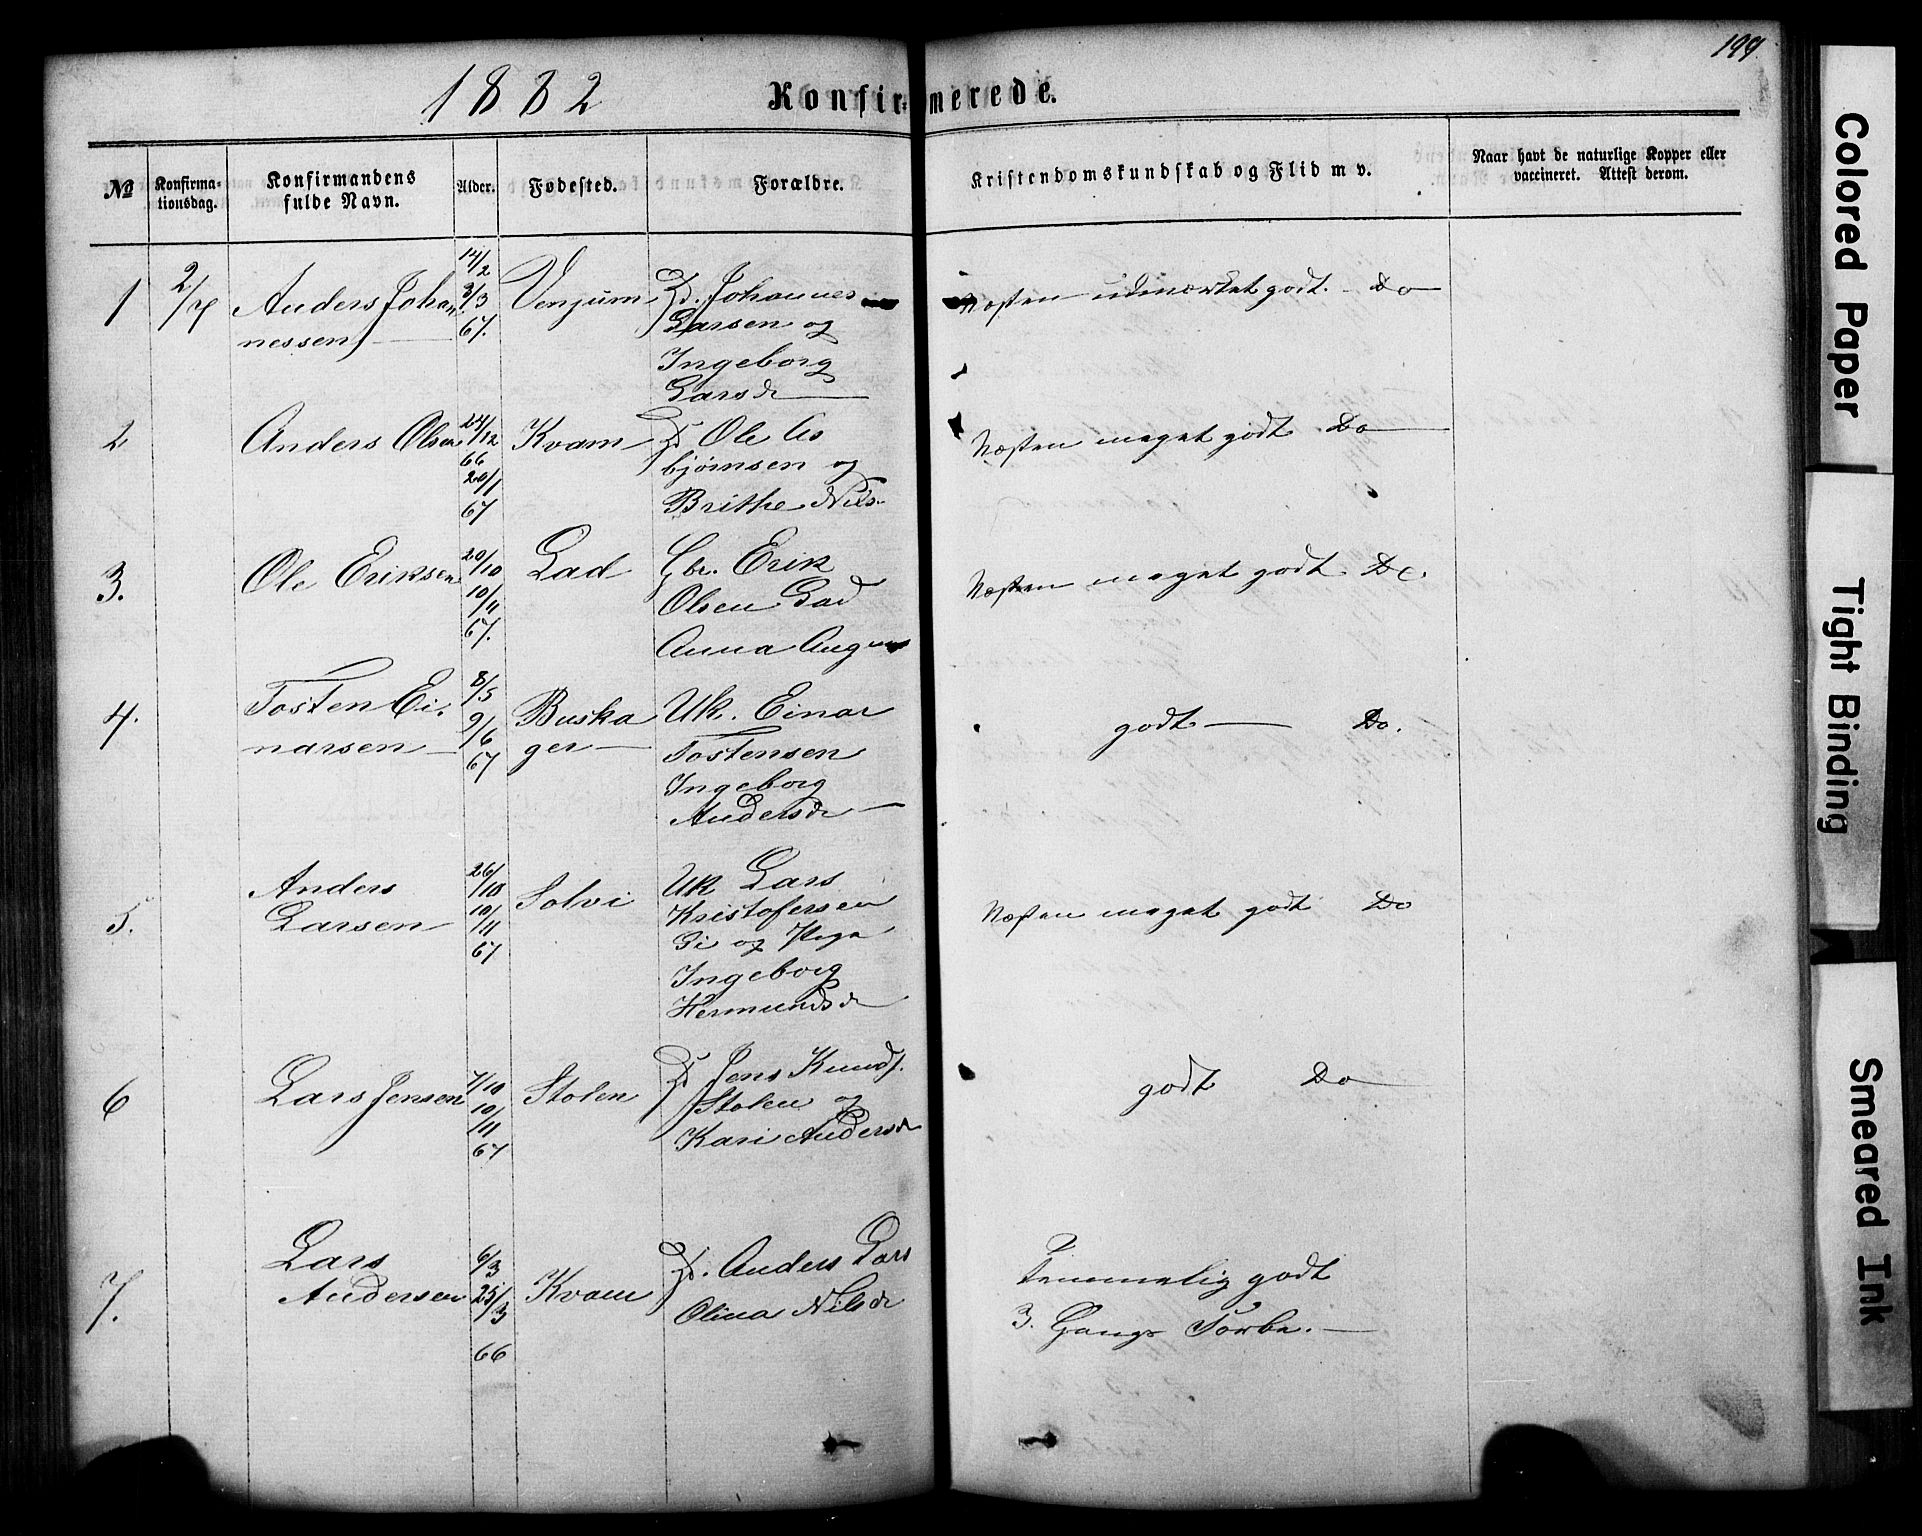 199
1882 Konfirmerede.
№ Konfirma-tionsdag. Konfirmandens fulde Navn. Alder. Fødested. Forældre. Kristendomskundskab og Flid m v. Naar havt de naturlige Kopper eller vaccineret. Attest derom.
1 2/7 Anders Johan 14/2 3/3 67. Venjum Johannes Næsten udmærket godt. - Do
nessen Larsen og
Ingeborg
Larsd
2 Anders Olsen 24/12 66 20/1 67 Kvam Ole As Næsten meget godt Do
bjørnsen og
Brithe Nils
3. Ole Eriksen 20/10 10/11 67. Lad Gbr. Erik Næsten meget godt Do.
Olsen Lad
Anna
4. Tosten Ei. 8/5 9/6 67 Buska Uk. Einar godt Do.
narsen ger Tostensen
Ingeborg
Andersd
5. Anders 26/10 10/11 67 Solvi Uk Lars Næsten meget godt Do
Larsen Kristofersen
Gi og Pige
Ingeborg
Hermundsd
6 Lars Jensen 7/10 10/11 67 Stolen Jens Knuds. godt Do
Stolen og
Kari Andersd
7. Lars 6/3 25/3 66 Kvam Anders Lars Temmelig godt
Andersen Olina Nilsd 3. Gangs
Colored Paper
Tight Binding
Smeared Ink